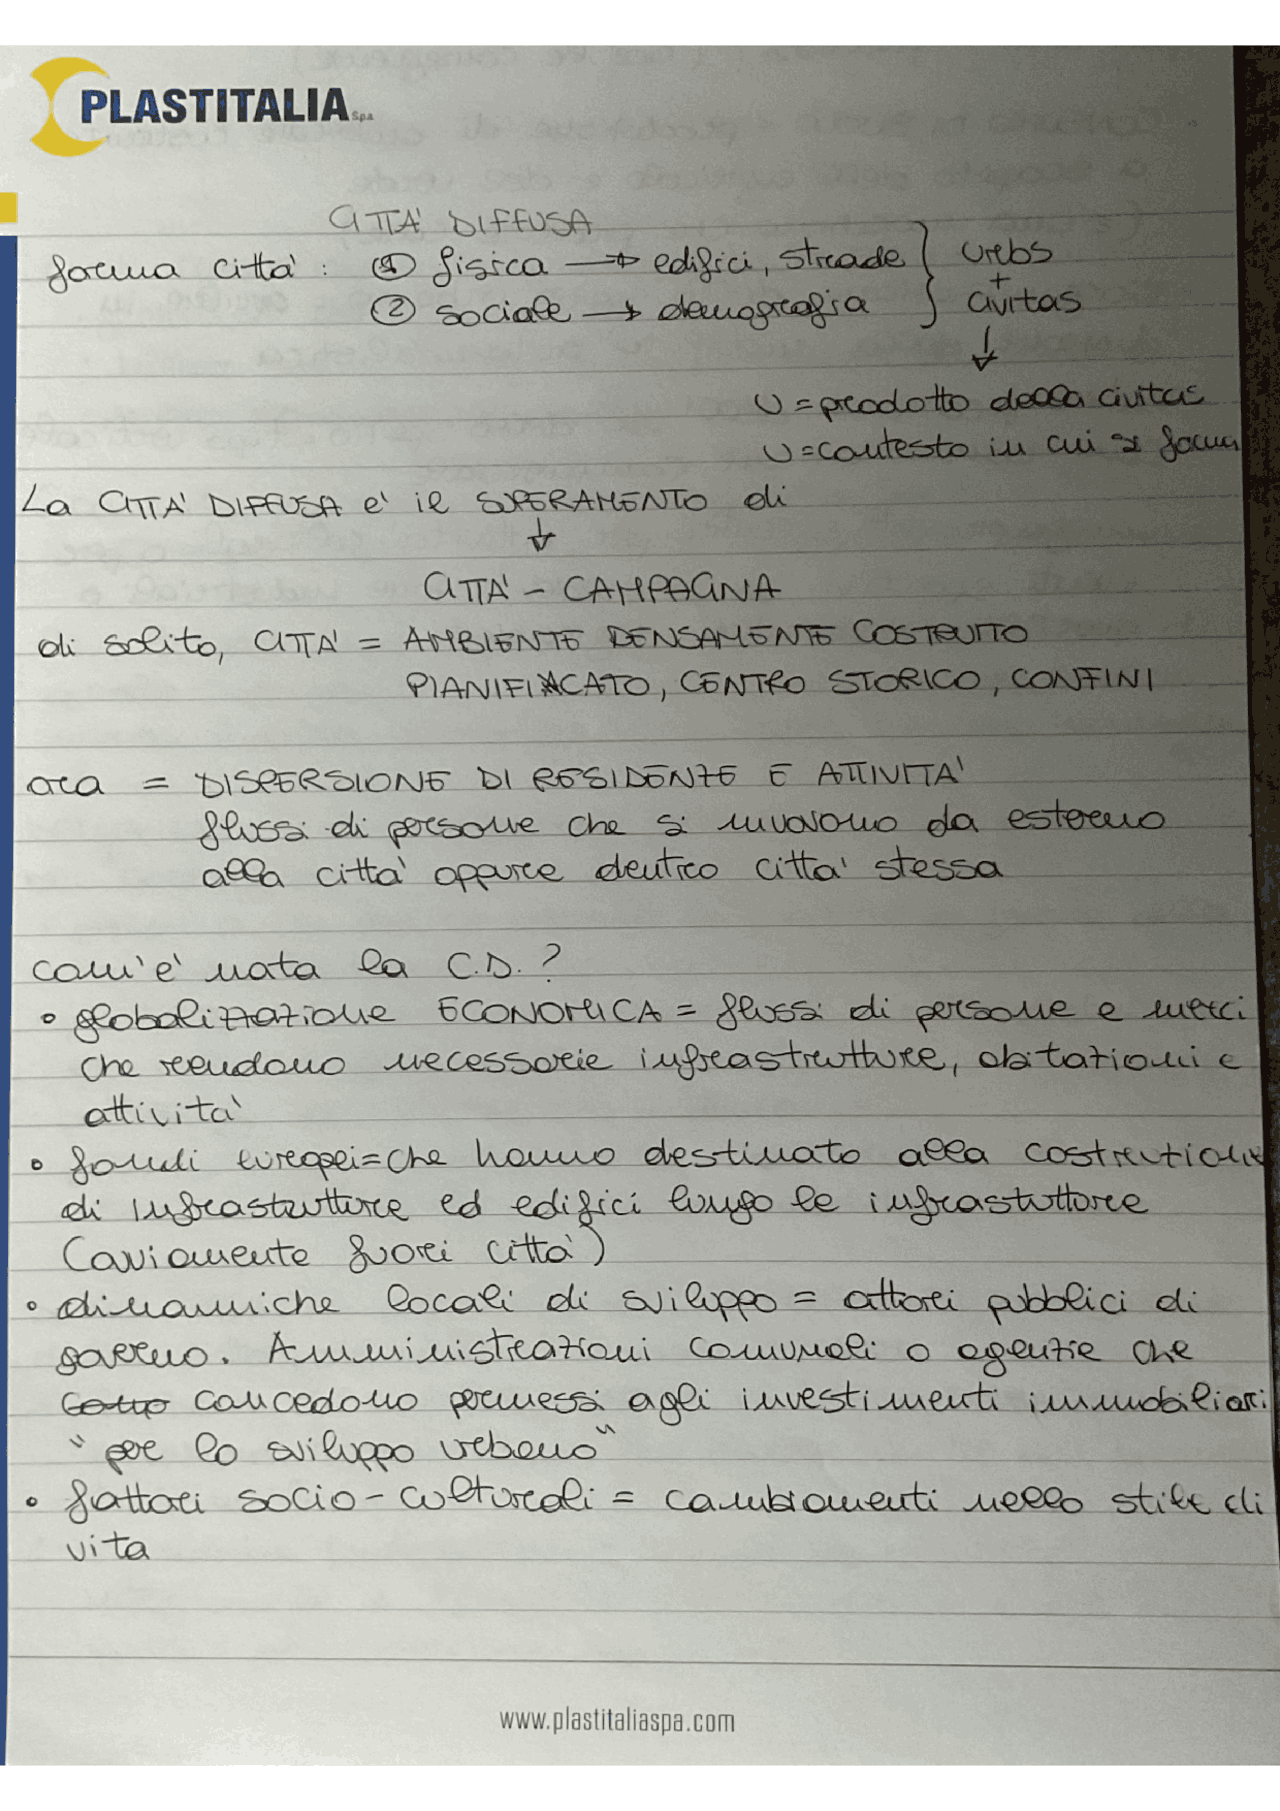 PLASTITALIA Spa
CITTA' DIFFUSA
forma città : ① fisica → edifici, strade } urbs
+
② sociale → demografia } civitas
↓
U = prodotto della civitas
U = contesto in cui si form
La CITTA' DIFFUSA e' il SUPERAMENTO di
↓
CITTA' - CAMPAGNA
di solito, CITTA' = AMBIENTE DENSAMENTE COSTRUITO
PIANIFICATO, CENTRO STORICO, CONFINI
ora = DISPERSIONE DI RESIDENZE E ATTIVITA'
flussi di persone che si muovono da esterno
alla citta' oppure dentro citta' stessa
com'e' nata la C.D. ?
• globalizzazione ECONOMICA = flussi di persone e merci
che rendono necessarie infrastrutture, abitazioni e
attivita'
• fondi europei = che hanno destinato alla costruzione
di infrastrutture ed edifici lungo le infrastuttore
(ovviamente fuori citta')
• dinamiche locali di sviluppo = attori pubblici di
governo. Amministrazioni comunali o agenzie che
concedono permessi agli investimenti immobiliari
" per lo sviluppo urbano"
• fattori socio-culturali = cambiamenti nello stile di
vita
www.plastitaliaspa.com